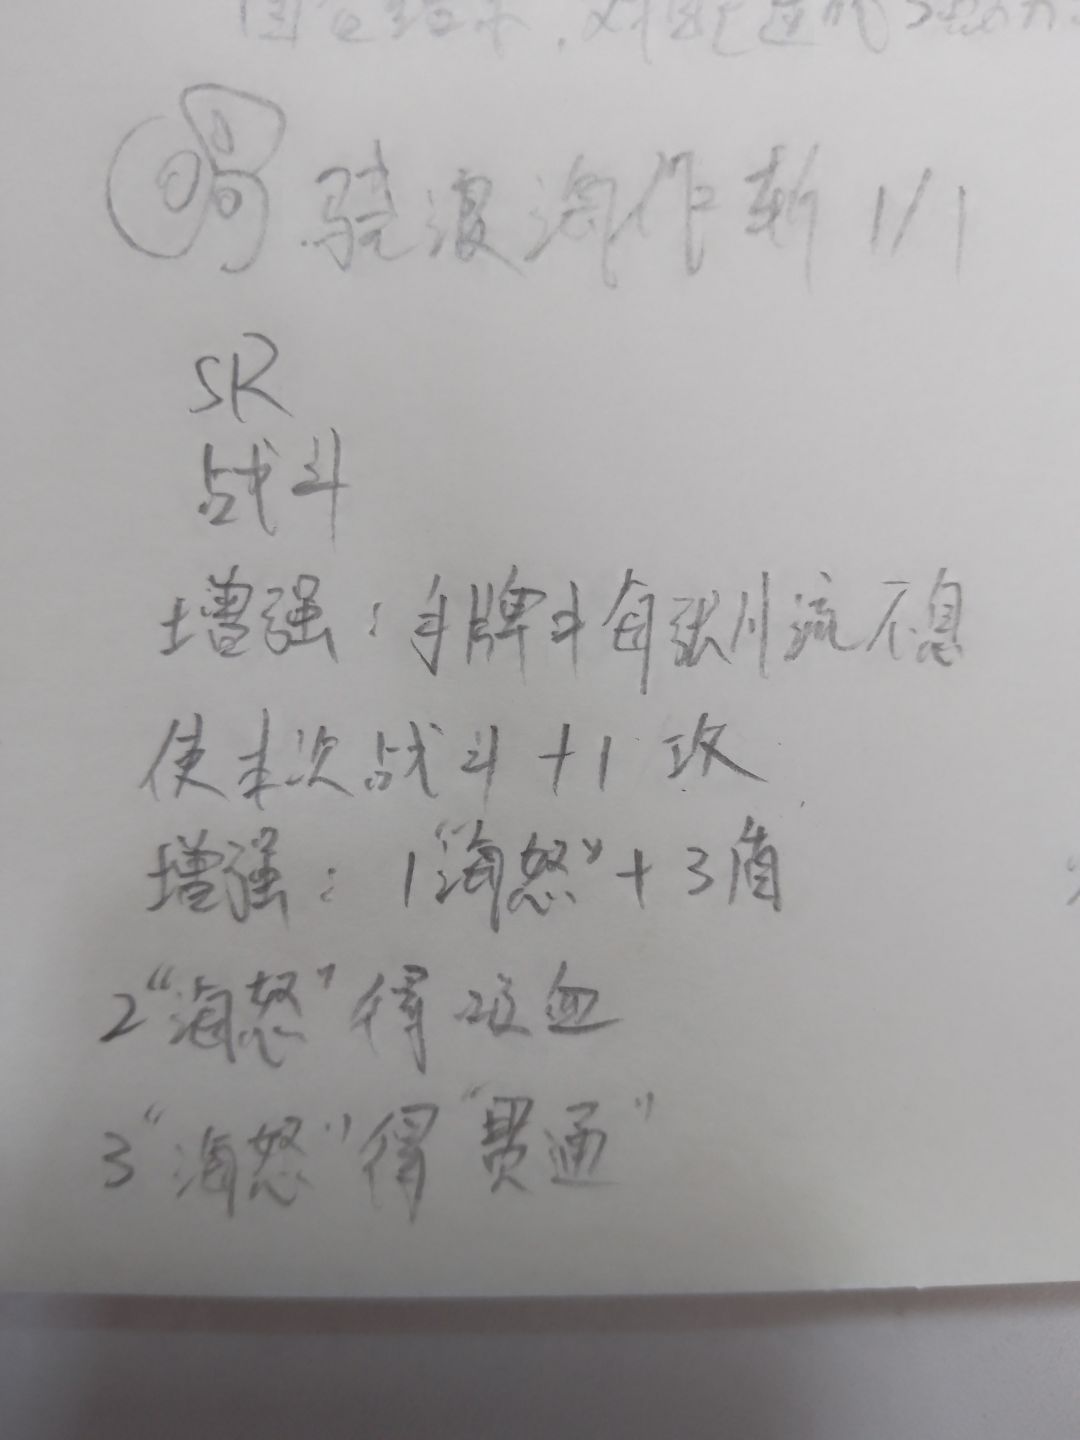 骁浪海作斩 1/1
SR
战斗
增强：手牌斗每张川流不息
使本次战斗+1 攻
增强：1“海怒”+3盾
2“海怒”得吸血
3“海怒”得“贯通”